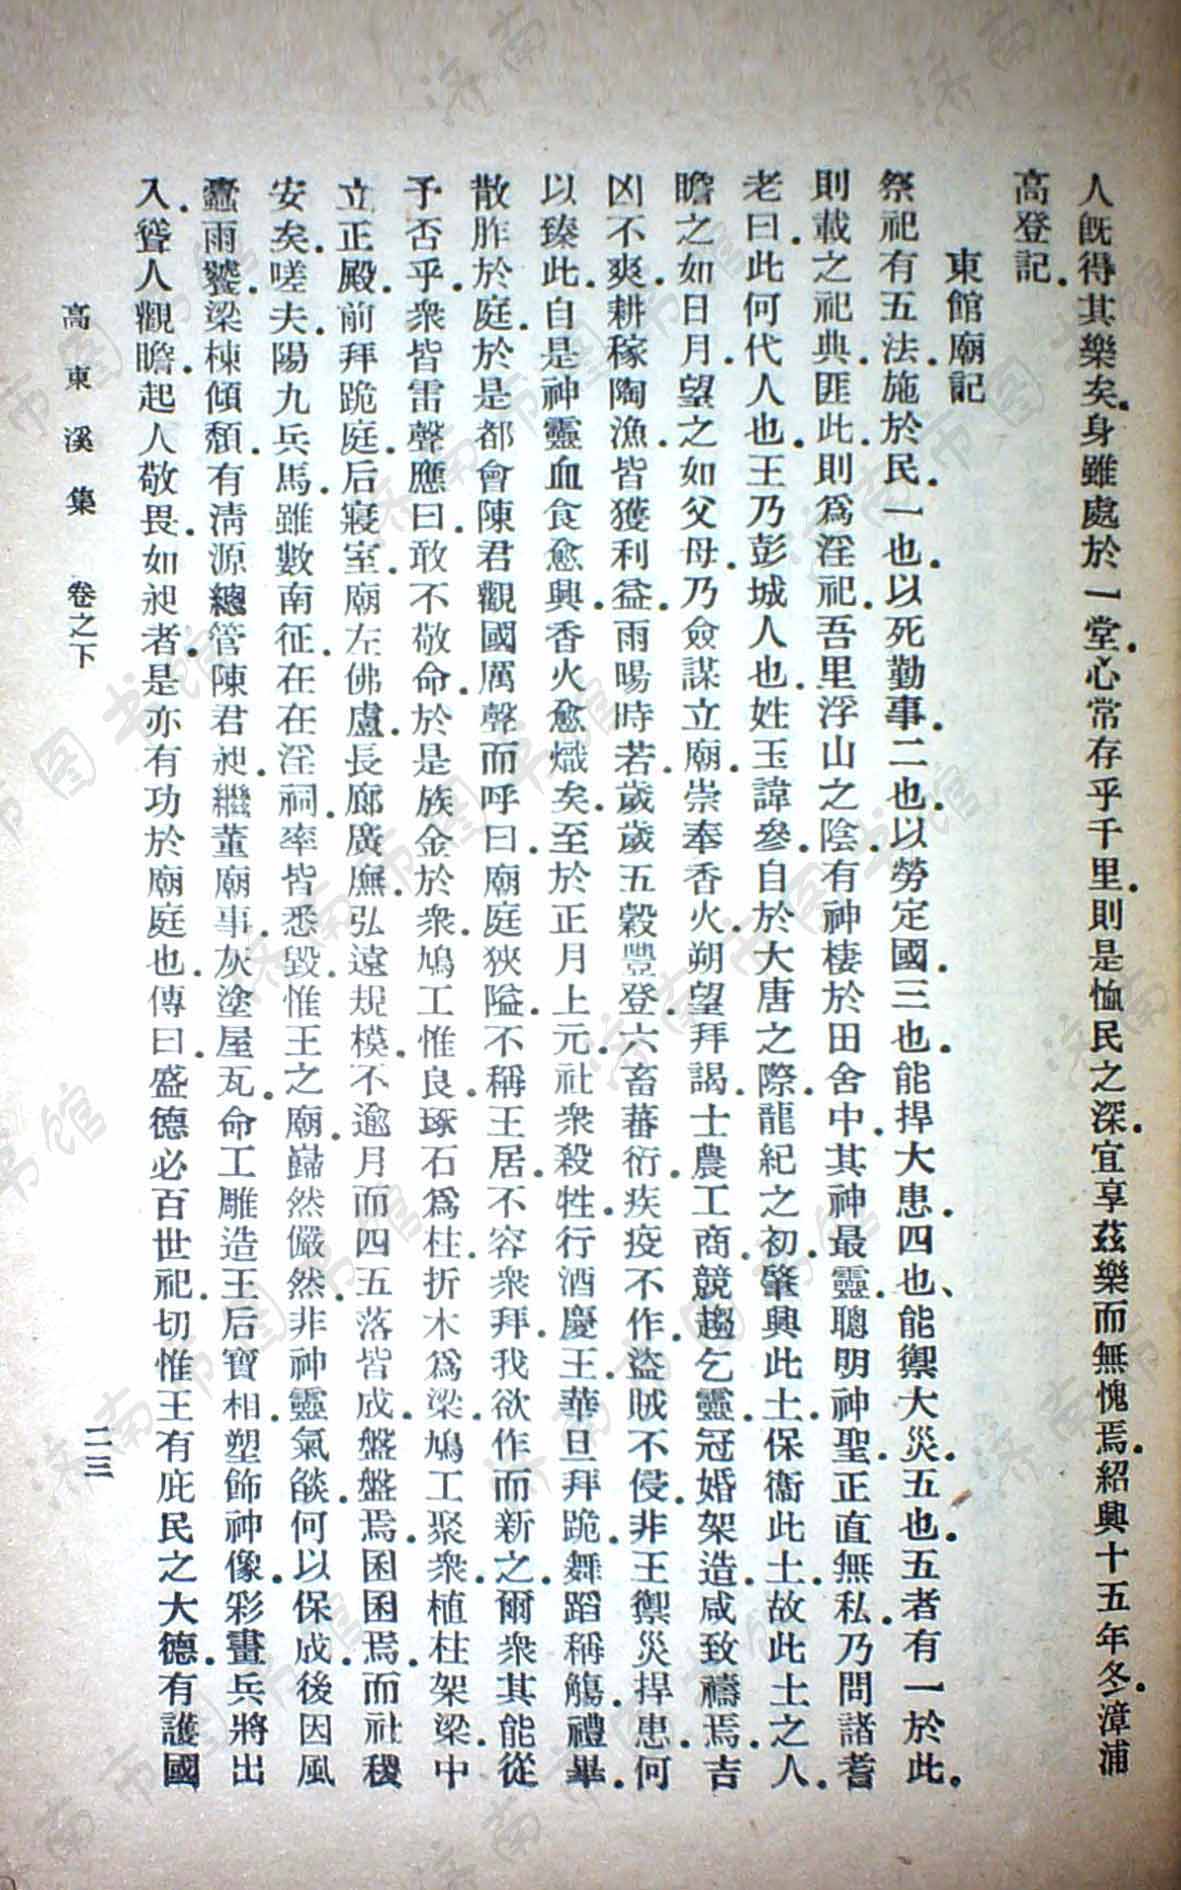 人既得其樂矣.身雖處於一堂.心常存乎千里.則是恤民之深.宜享茲樂而無愧焉.紹興十五年冬.漳浦
高登記.
東館廟記
祭祀有五法.施於民.一也.以死勤事.二也.以勞定國.三也.能捍大患.四也、能禦大災.五也.五者有一於此.
則載之祀典.匪此.則爲淫祀.吾里浮山之陰.有神棲於田舍中.其神最靈.聰明神聖.正直無私.乃問諸耆
老曰.此何代人也.王乃彭城人也.姓玉諱參.自於大唐之際.龍紀之初.肇興此土.保衞此土.故此土之人.
瞻之如日月.望之如父母.乃僉謀立廟.崇奉香火.朔望拜謁.士農工商.競趨乞靈.冠婚架造.咸致禱焉.吉
凶不爽.耕稼陶漁.皆獲利益.雨暘時若.歲歲五穀豐登.六畜蕃衍.疾疫不作.盜賊不侵.非王禦災捍患.何
以臻此.自是神靈血食愈興.香火愈熾矣.至於正月上元.社衆殺牲.行酒慶王.華旦拜跪.舞蹈稱觴.禮畢.
散胙於庭.於是都會陳君觀國厲聲而呼曰.廟庭狹隘.不稱王居.不容衆拜.我欲作而新之.爾衆其能從
予否乎.衆皆雷聲應曰.敢不敬命.於是族金於衆.鳩工惟良.琢石爲柱.折木爲梁.鳩工聚衆.植柱架梁.中
立正殿.前拜跪庭.后寢室.廟左佛盧.長廊廣廡.弘遠規模.不逾月而四五落皆成.盤盤焉.囷囷焉.而社稷
安矣.嗟夫.陽九兵馬.雖數南征.在在淫祠.率皆悉毀.惟王之廟.巋然儼然.非神靈氣燄.何以保成.後因風
蠹雨饕.梁棟傾頽.有淸源總管陳君昶.繼董廟事.灰塗屋瓦.命工雕造王后寶相.塑飾神像.彩畫兵將出
入.聳人觀瞻.起人敬畏.如昶者.是亦有功於廟庭也.傳曰.盛德必百世祀.切惟王有庇民之大德.有護國
高東溪集 卷之下 二三
济南市图书馆